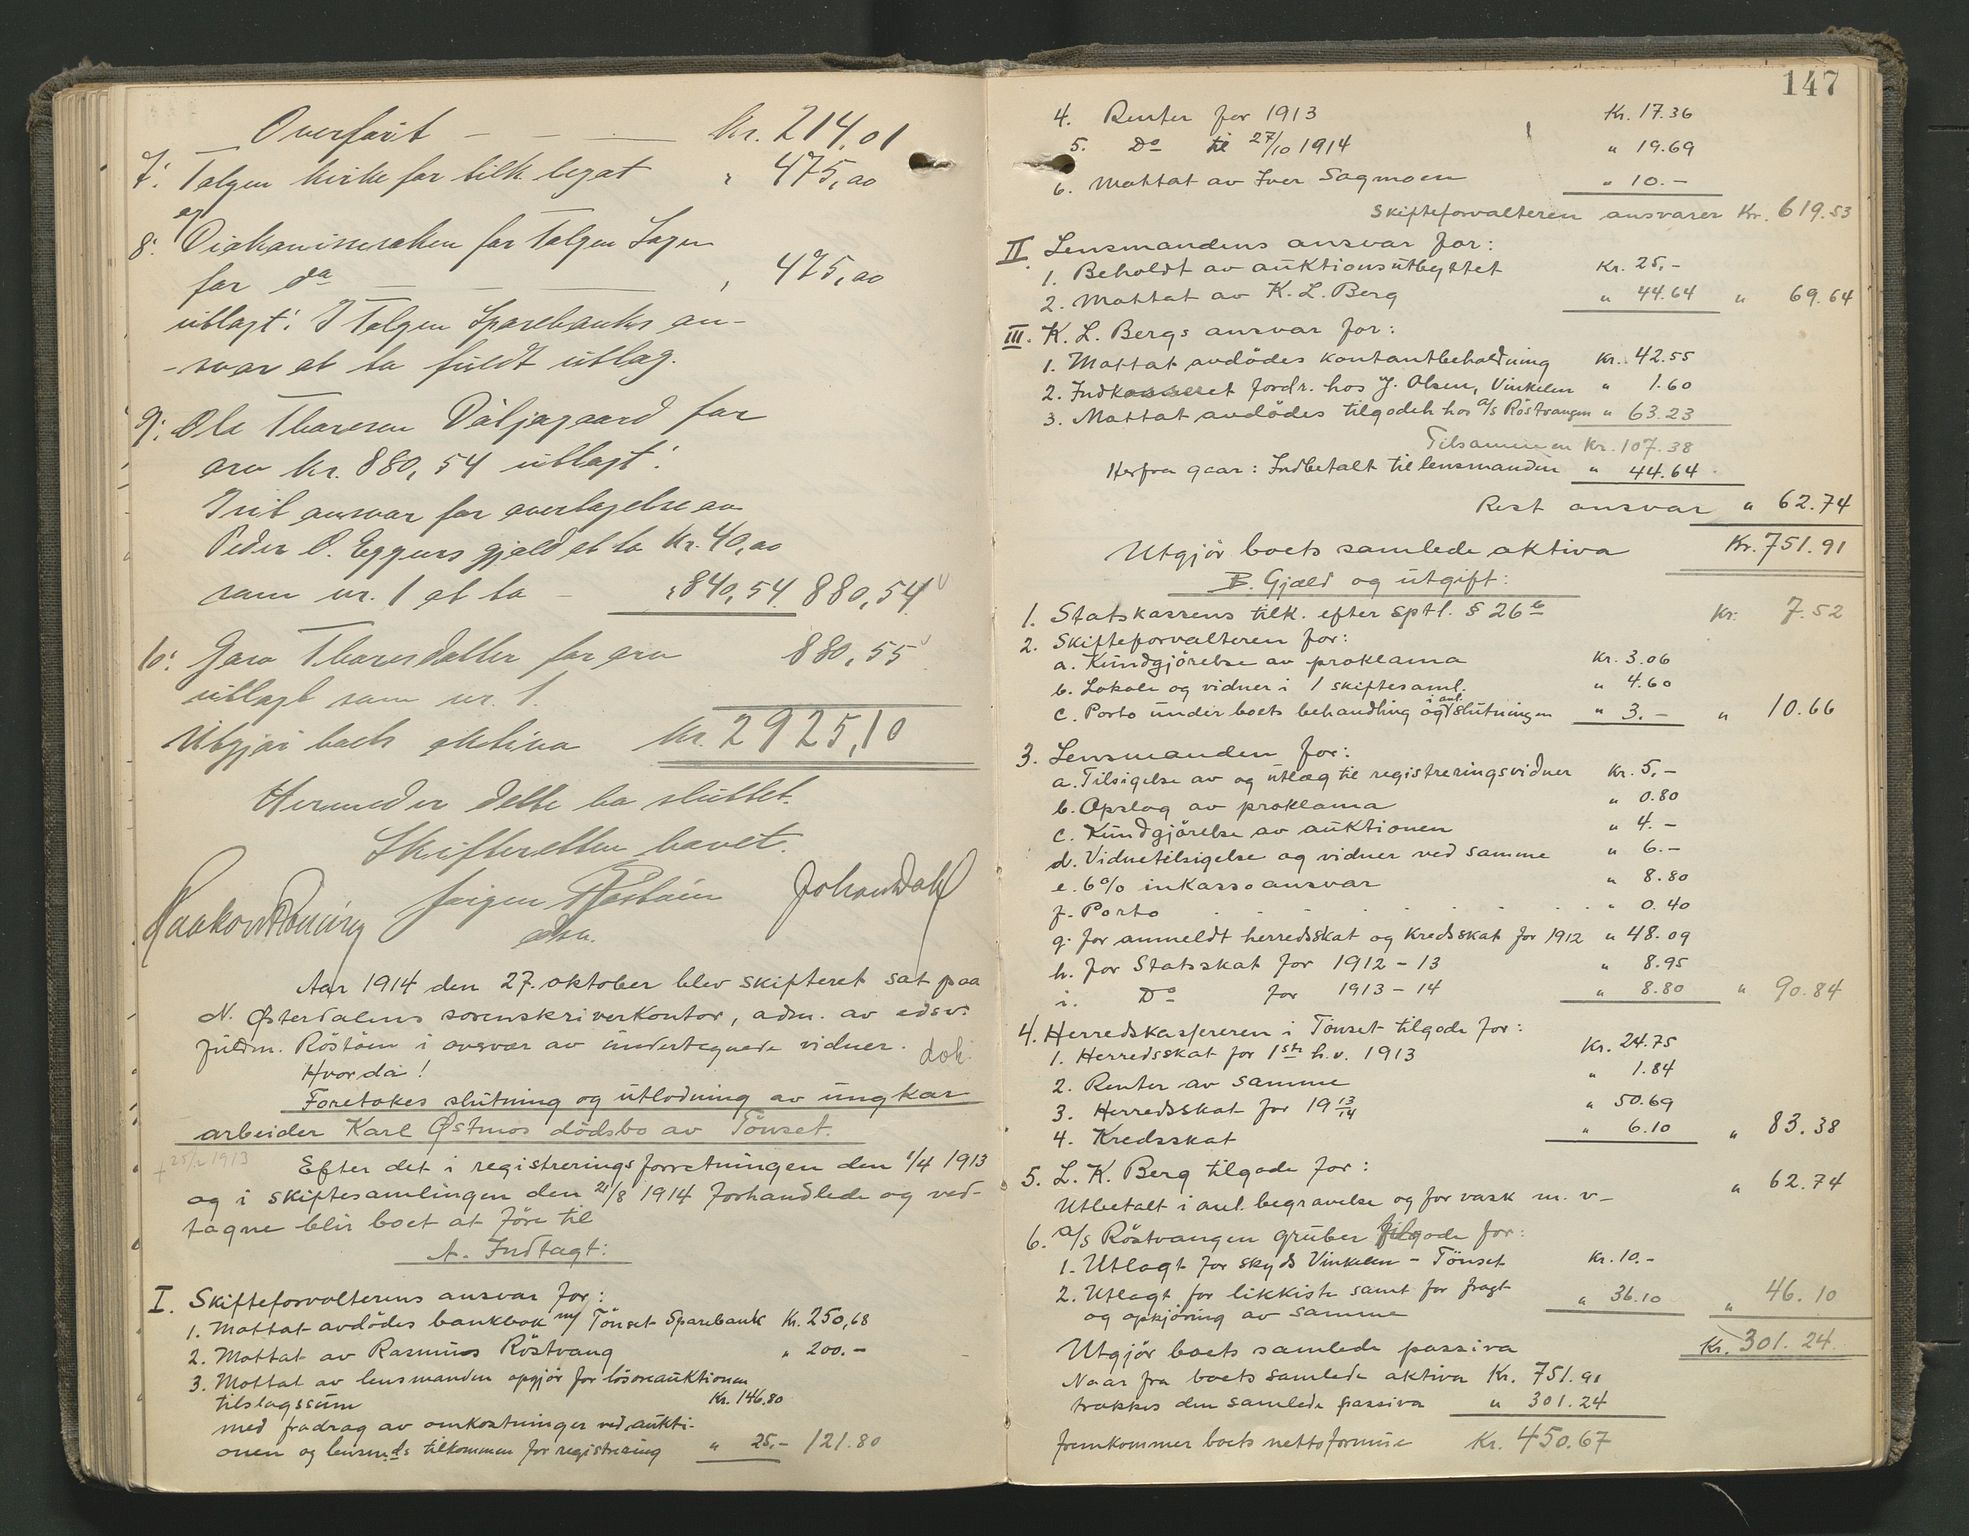 Overført — — — kr. 214,01
7: Tolgen kirke for tilk. legat " 475,00
og
8: Diakonissesaken for Tolgen Sogn
for do — — — " 475,00
utlagt: I Tolgen Sparebanks an-
svar at ta fuldt utlæg.
9: Ole Thoresen Daljagaard for
arv kr. 880,54 utlagt:
I sit ansvar for overtagelse av
Peder O. Eggens gjæld at ta kr. 40,00
som nr. 1 at ta — " 840,54 880,54
10: Goro Thoresdatter for arv 880,55
utlagt som nr. 1.
Utgjør boets aktiva kr. 2925,10
Hermeder dette bo sluttet.
Skifteretten hævet.
Haakon Røning Jørgen Røstøen Johan Dahl
edsv.
Aar 1914 den 27. oktober blev skifteret sat paa
N. Østerdalens sorenskriverkontor, adm. av edsv.
fuldm. Röstöen i overvær av undertegnede vidner.
dok
Hvorda!
Foretokes slutning og utlodning av ungkar
arbeider Karl Östmos dödsbo av Tönset.
+ 25/2 1913
Efter det i registreringsforretningen den 1/4 1913
og i skiftesamlingen den 21/8 1914 forhandlede og ved-
tagne blir boet at före til
A. Indtægt:
I. Skifteforvalterens ansvar for:
1. Mottat avdödes bankbok m/ Tönset Sparebank Kr. 250,68
2. Mottat av Rasmus Röstvang " 200.-
3. Mottat av lensmanden opgjör for lösöreauktionen
tilslagssum Kr. 146.80
med fradrag av omkostninger ved aukti-
onen og lensm.ds tilkommen for registrering " 25.- 121.80
147
4. Renter for 1913 Kr. 17.36
5. Do til 27/10 1914 " 19.69
6. Mottat av Iver Sagmoen " 10.-
Skifteforvalteren ansvarer Kr. 619.53
II. Lensmandens ansvar for:
1. Beholdt av auktionsutbyttet Kr. 25,-
2. Mottat av K. L. Berg " 44.64 " 69.64
III. K. L. Bergs ansvar for:
1. Mottat avdödes kontantbeholdning Kr. 42.55
2. Indkasseret fordr. hos J. Olsen, Vinkelen " 1.60
3. Mottat avdödes tilgodeh. hos a/s Röstvangen " 63.23
Tilsammen Kr. 107.38
Herfra gaar: Indbetalt til lensmanden " 44.64
Rest ansvar " 62.74
Utgjör boets samlede aktiva Kr. 751.91
B. Gjæld og utgift:
1. Statskassens tilk. efter sptl. § 26 b Kr. 7.52
2. Skifteforvalteren for:
a. Kundgjörelse av proklama Kr. 3.06
b. Lokale og vidner i 1 skiftesaml. " 4.60
c. Porto under boets behandling og i anl. slutningen " 3.- " 10.66
3. Lensmanden for:
a. Tilsigelse av og utlæg til registreringsvidner Kr. 5,-
b. Opslag av proklama " 0.80
c. Kundgjörelse av auktionen " 4.-
d. Vidnetilsigelse og vidner ved samme " 6.-
e. 6% inkassoansvar " 8.80
f. Porto . . . . . . " 0.40
g. for anmeldt herredsskat og Kredsskat for 1912 " 48.09
h. for Statsskat for 1912-13 " 8.95
i. Do for 1913-14 " 8.80 " 90.84
4. Herredskassereren i Tönset tilgode for:
1. Herredsskat for 1ste h.v. 1913 Kr. 24.75
2. Renter av samme " 1.84
3. Herredsskat for 19 13/14 " 50.69
4. Kredsskat " 6.10 " 83.38
5. L. K. Berg tilgode for:
Utbetalt i anl. begravelse og for vask m. v- " 62.74
6. a/s Röstvangen gruber tilgode for:
1. Utlagt for skyds Vinkelen - Tönset Kr. 10.-
2. Utlagt for likkiste samt for fragt
og opkjöring av samme " 36.10 " 46.10
Utgjör boets samlede passiva Kr. 301.24
Naar fra boets samlede aktiva Kr. 751.91
trækkes den samlede passiva " 301.24
fremkommer boets nettoformue Kr. 450.67